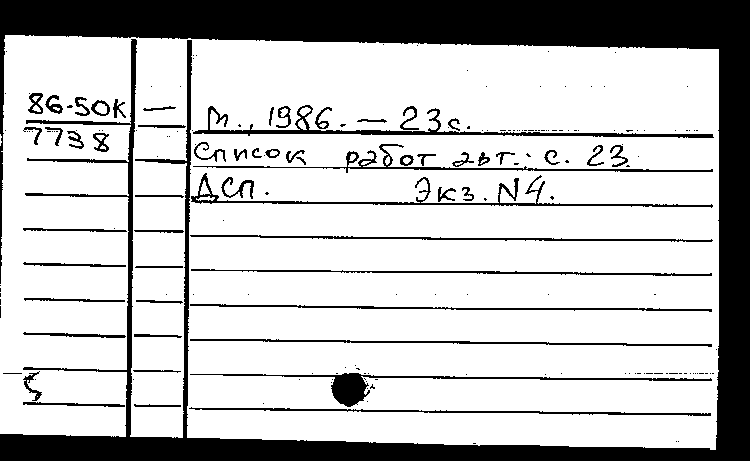 86-50К — М., 1986. — 23с.
7738 Список работ авт.: с. 23
ДСП. Экз. N4.